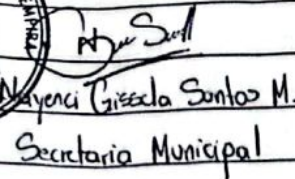 EMPIRA
Nayenci Gissela Santos M.
Secretaria Municipal